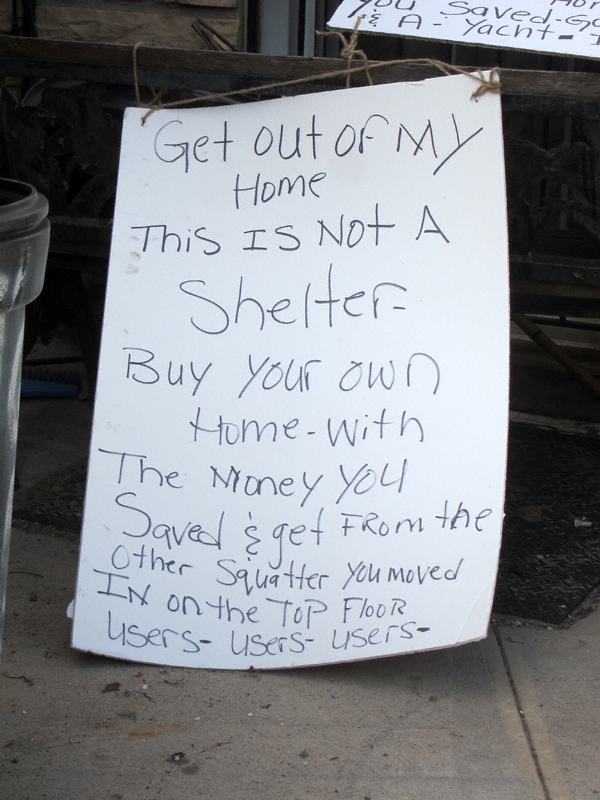 you Saved-Go
& A- Yacht-
Get out of My
Home
This Is Not A
Shelter-
Buy your own
Home-with
The Money you
Saved & get From the
Other Squatter you moved
In on the Top Floor
users- users- users-